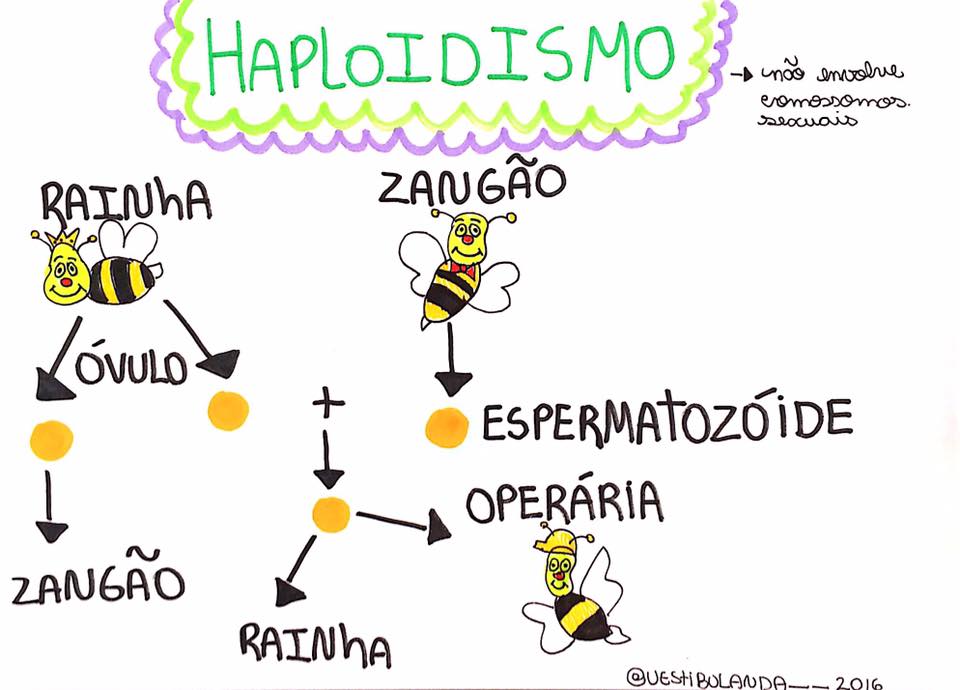 HAPLOIDISMO
→ não envolve
cromossomos
sexuais
RAINhA
ZANGÃO
ÓVULO
+
ESPERMATOZÓIDE
OPERÁRIA
ZANGÃO
RAINhA
@VESTiBULANDA__ 2016